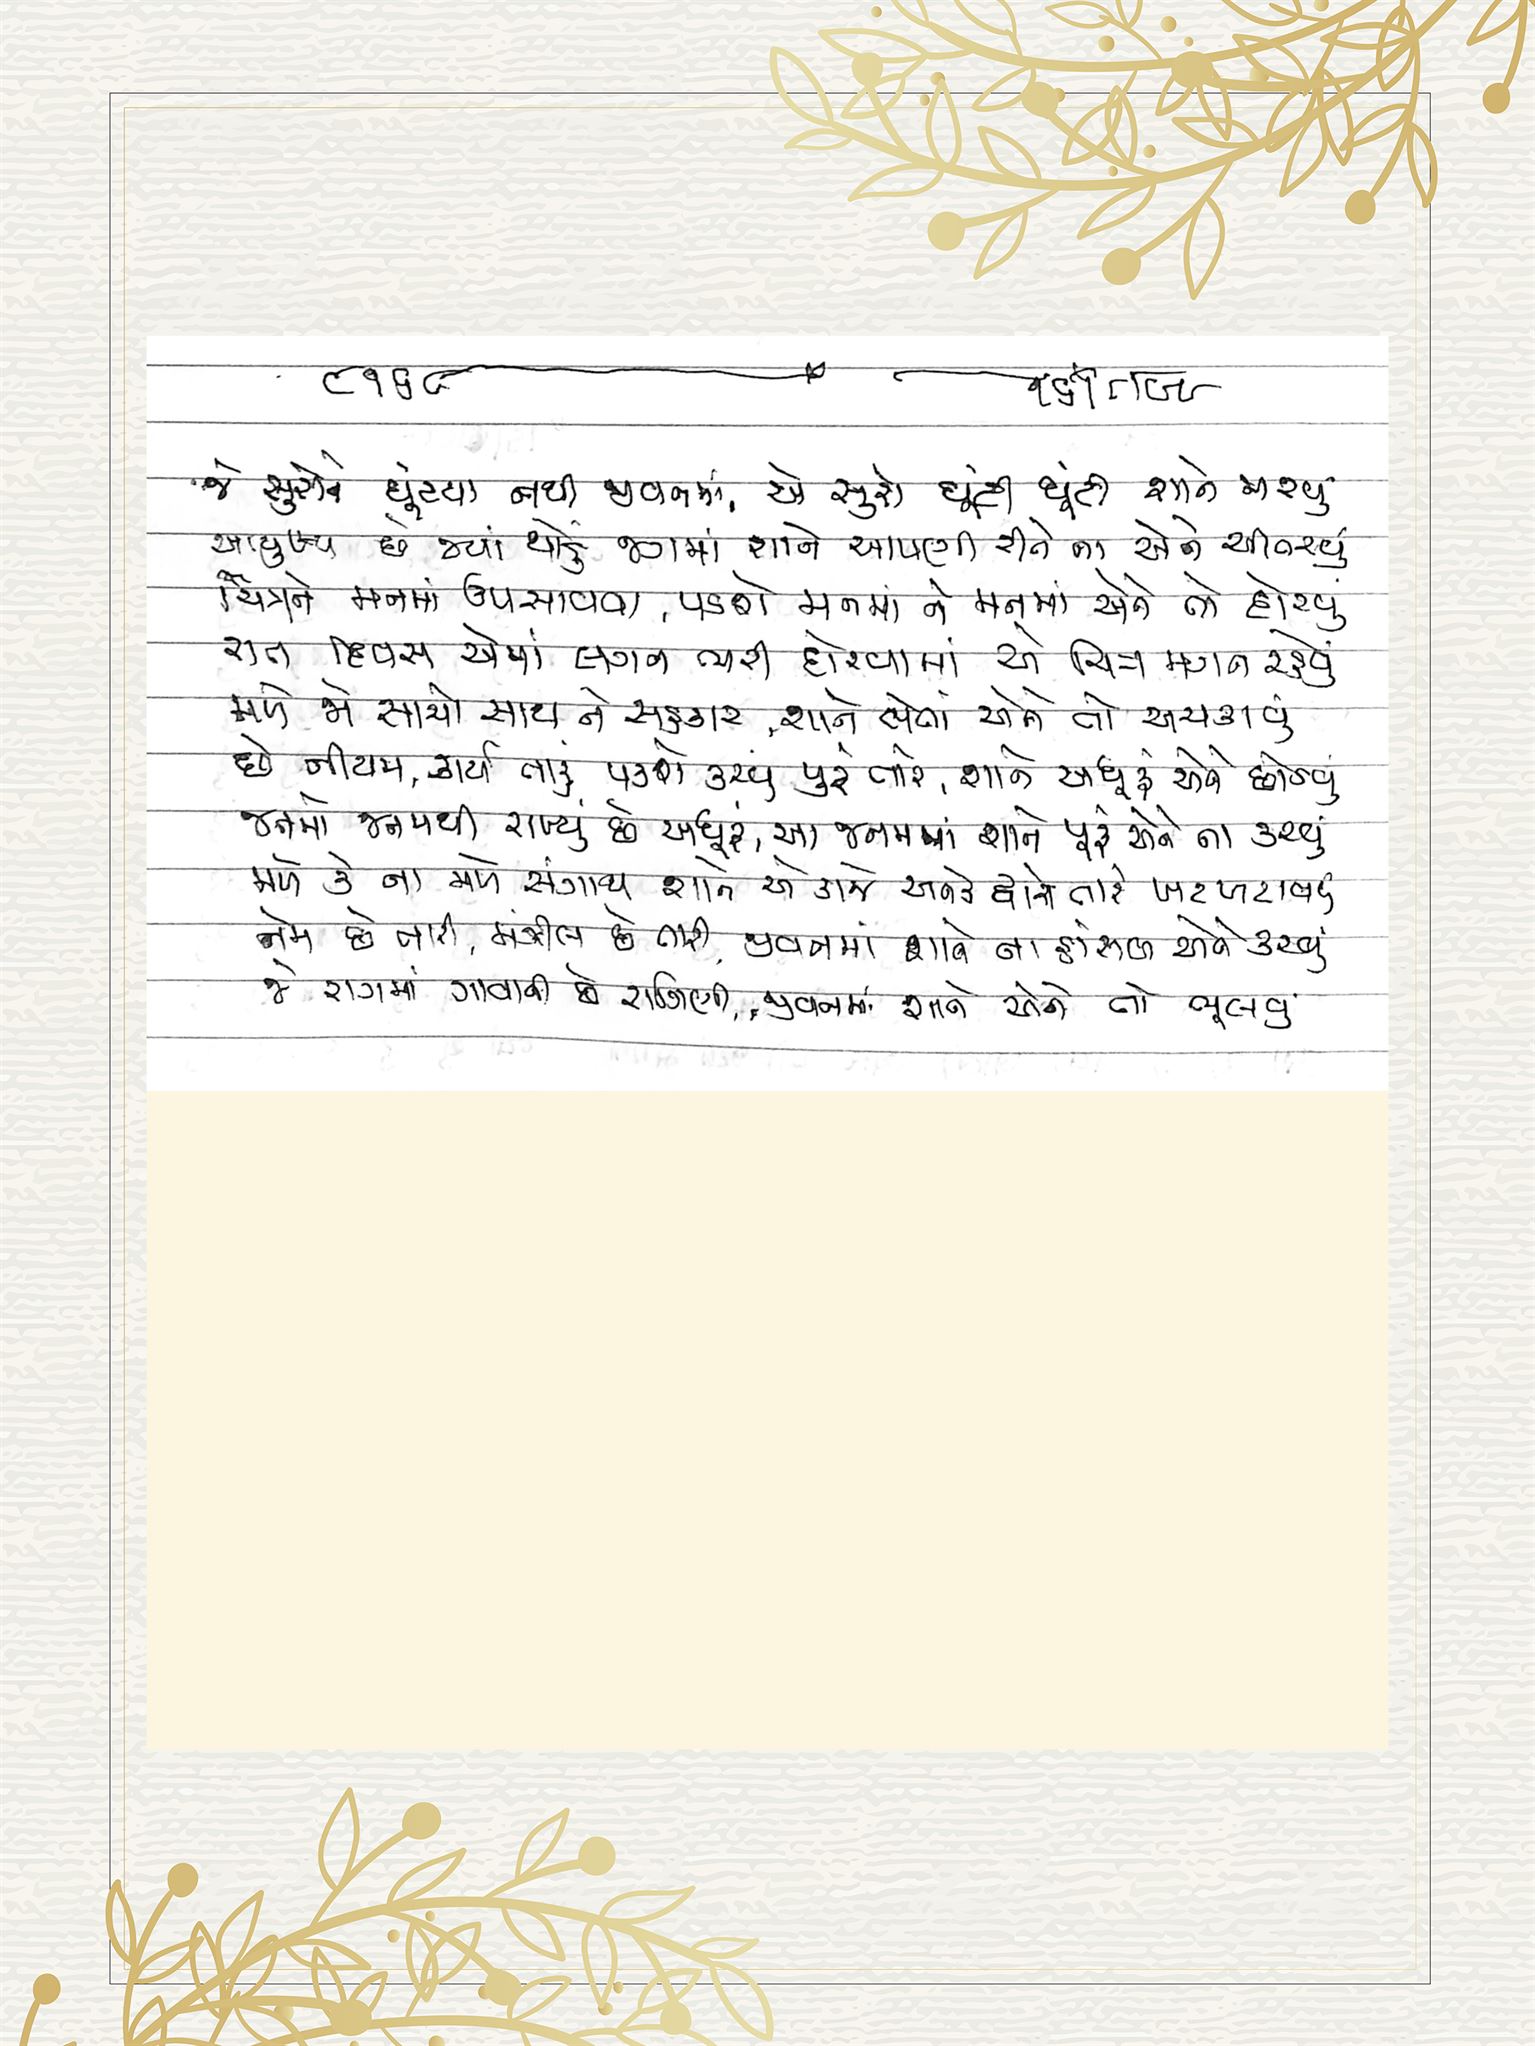 ૯૧૬૮
જે સુરોને ઘૂંટયા નથી જીવનમાં, એ સુરો ઘૂંટી ઘૂંટી શાને મરવું
આયુષ્ય છે જ્યાં થોડું જગમાં શાને આપણી રીતે ના એને જીવવું
ચિત્રને મનમાં ઉપસાવવા, પડશે મનમાં ને મનમાં એને તો દોરવું
રાત દિવસ એમાં લગન ભરી દોરવામાં એ ચિત્ર મગન રહેવું
મળે જો સાચો સાથ ને સહકાર, શાને લેતાં એને તો અચકાવું
છે નીયમ, કાર્ય તારું પડશે કરવું પુરું તારે, શાને અધૂરું એને છોડવું
જનમો જનમથી રાખ્યું છે અધૂરું, આ જનમમાં શાને પૂરું એને ના કરવું
મળે કે ના મળે સંગાથ શાને એ કાજે અનેક દ્વારો તારે ખટખટાવવું
નેમ છે તારી, મંઝીલ છે તારી, જીવનમાં શાને ના હાંસલ એને કરવું
જે રાગમાં ગાવાની છે રાગિણી, જીવનમાં શાને એને તો ભૂલવું